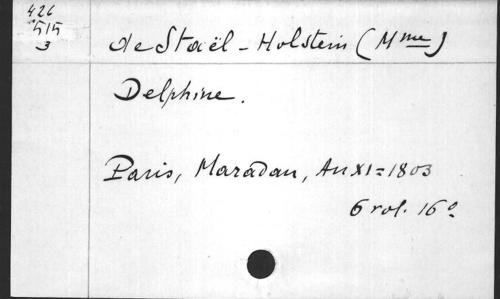 426
515
3
de Staël - Holstein (Mme)
Delphine.
Paris, Maradan, An XI = 1803
6 vol. 16º